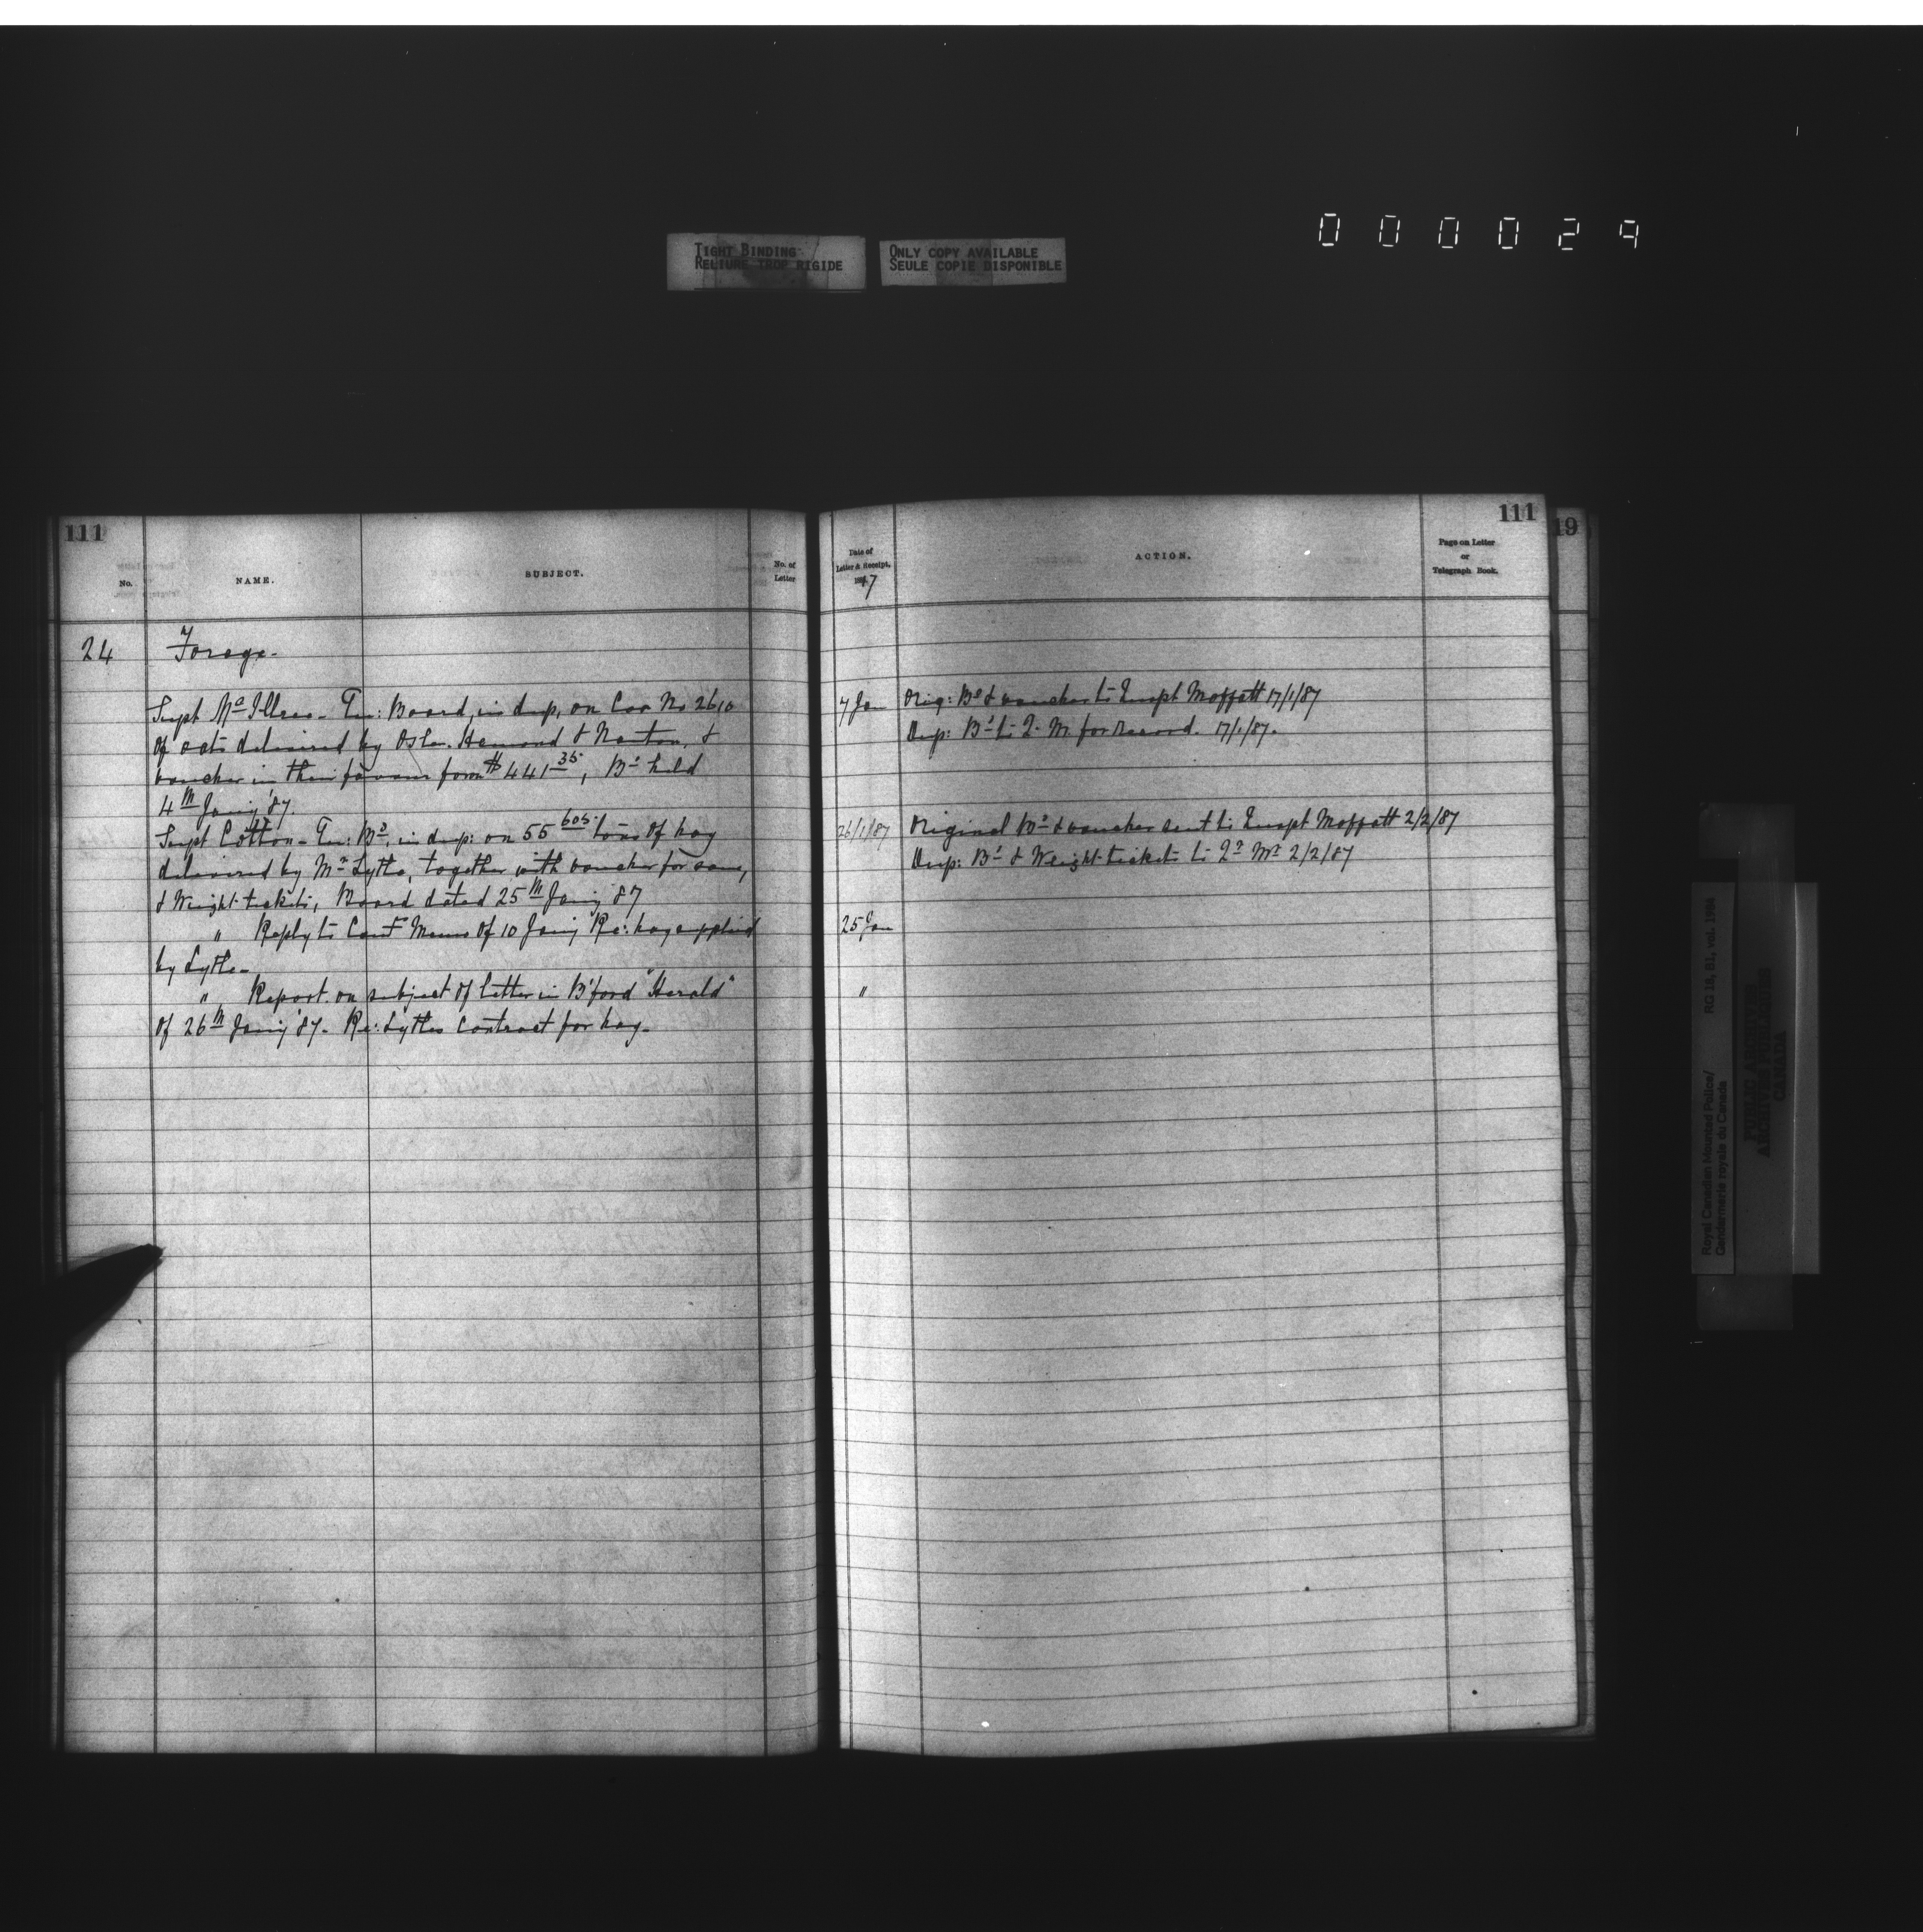 TIGHT BINDING
RELIURE TROP RIGIDE
ONLY COPY AVAILABLE
SEULE COPIE DISPONIBLE
000029
111
No.
NAME.
SUBJECT.
No. of
Letter
24
Forage.
Supt McIllree - Board, in dup, on Car No 2610
of oats delivered by Osler. Hamond & Nanton, &
voucher in their favour for $441 35, Bd held
4th Jany '87.
Supt Cotton - Bd, in dup: on 55 605 tons of hay
delivered by Mr Lytle, together with voucher for same,
& Weight-tickets, Board dated 25th Jany 87
" Reply to Memo of 10 Jany Re: hay supplied
by Lytle -
" Report on subject of letter in B'ford "Herald"
of 26th Jany '87 - Re: Lytles Contract for hay -
111
19
Date of
Letter & Receipt,
1887
ACTION.
Page on Letter
or
Telegraph Book.
7 Jan Orig: Bd & voucher to Inspt Moffatt 17/1/87
Dup: Bd to Q. M. for Record. 17/1/87.
26/1/87 Original Bd & voucher sent to Inspt Moffatt 2/2/87
Dup: Bd & Weight-tickets to Qr Mr 2/2/87
25 Jan
"
Royal Canadian Mounted Police/
Gendarmerie royale du Canada
RG 18, B1, vol. 1994
PUBLIC ARCHIVES
ARCHIVES PUBLIQUES
CANADA